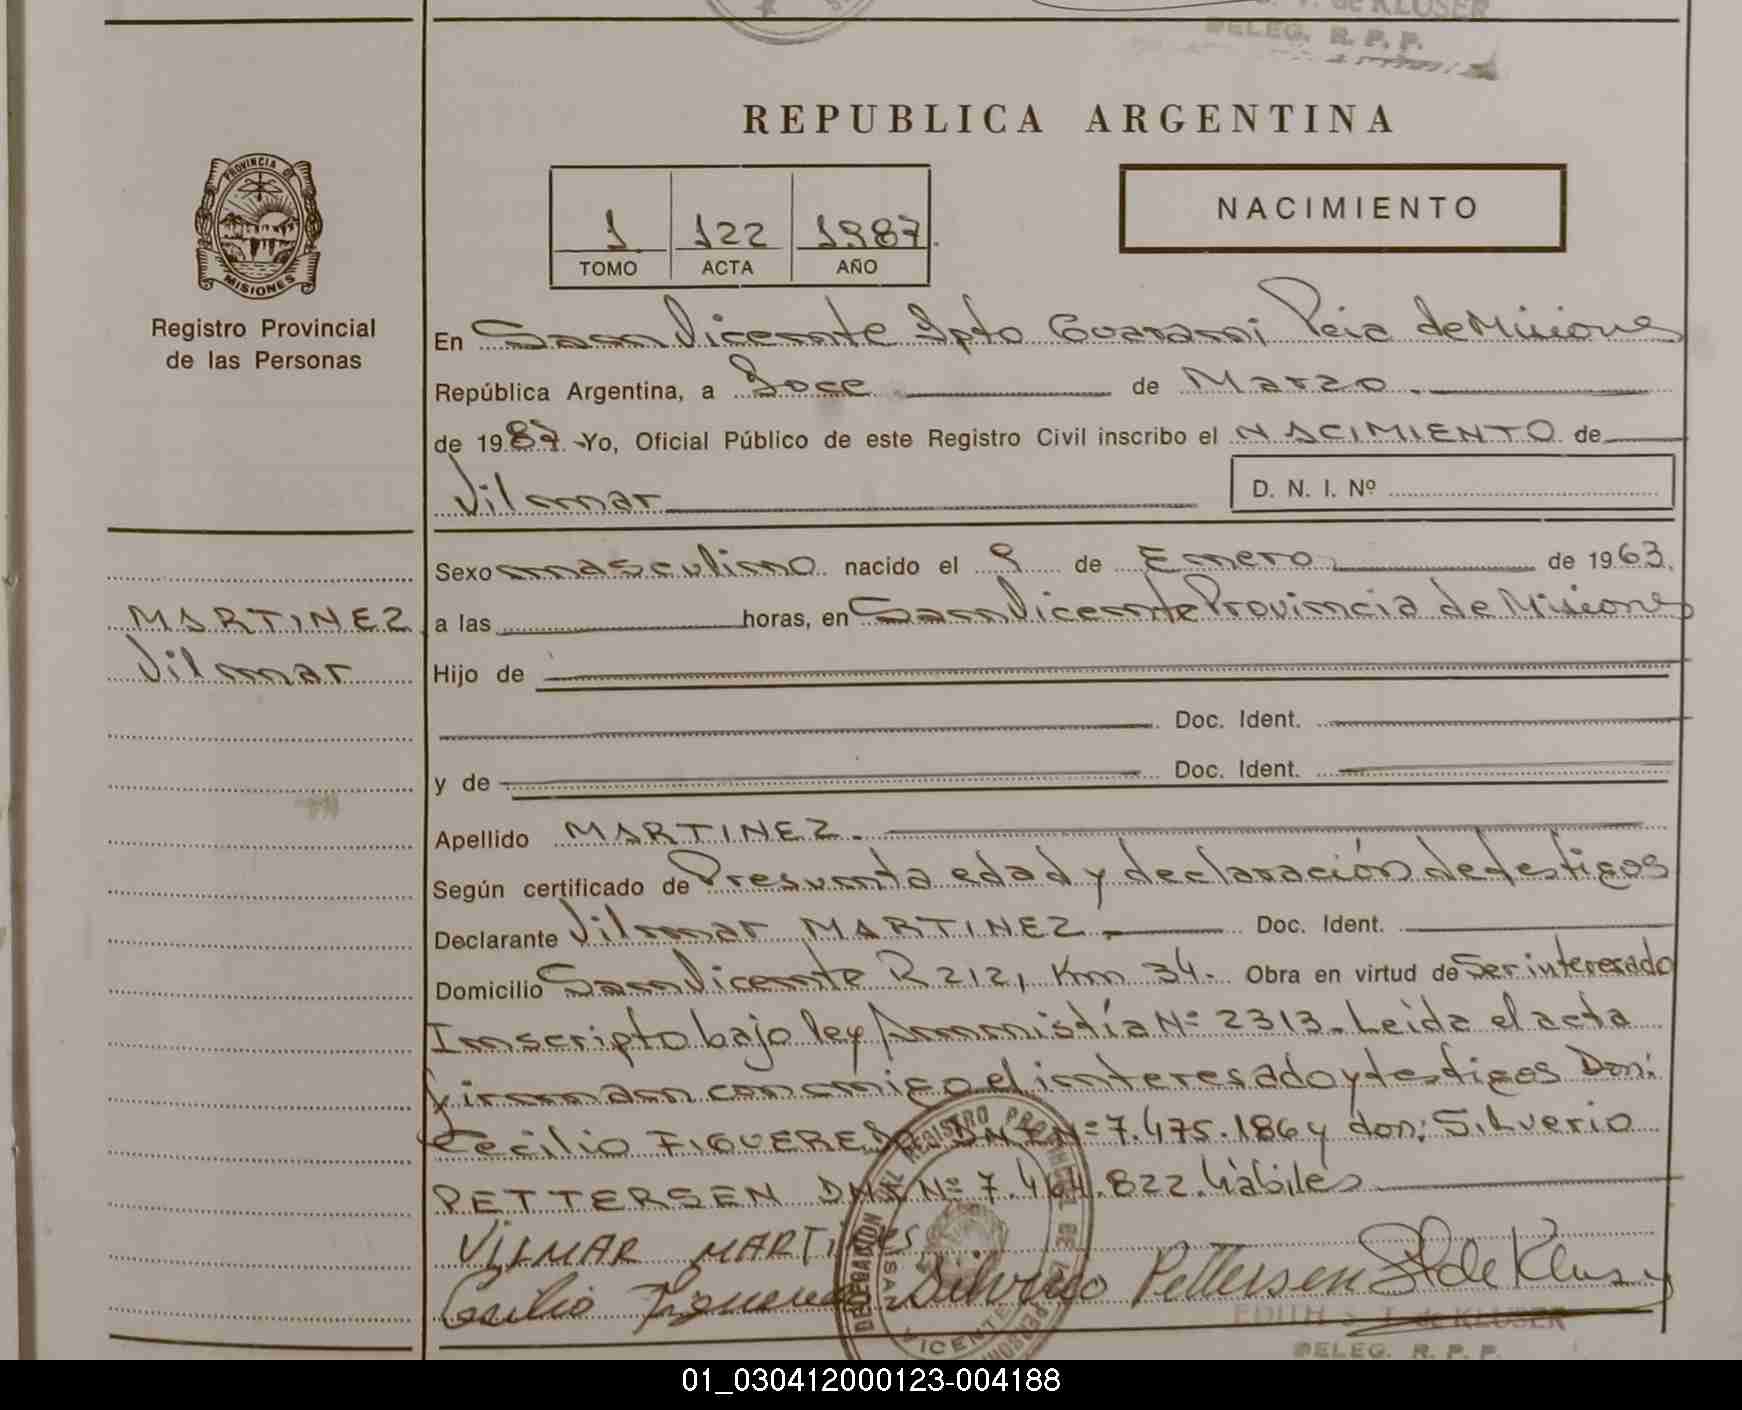 de KLUSER
DELEG. R. P. P.
REPUBLICA ARGENTINA
PROVINCIA DE
MISIONES
Registro Provincial
de las Personas
1 122 1987.
TOMO ACTA AÑO
NACIMIENTO
En San Vicente Dpto Guarani Pcia de Misiones
República Argentina, a Doce de Marzo.
de 1987. Yo, Oficial Público de este Registro Civil inscribo el NACIMIENTO de
Vilmar D. N. I. Nº
Sexo masculino nacido el 9 de Enero de 1963.
MARTINEZ
Vilmar
a las horas, en San Vicente Provincia de Misiones
Hijo de
Doc. Ident.
y de Doc. Ident.
Apellido MARTINEZ.
Según certificado de Presunta edad y declaración de testigos
Declarante Vilmar MARTINEZ. Doc. Ident.
Domicilio San Vicente R 212, Km 34. Obra en virtud de Ser interesado
Inscripto bajo ley Ammistía Nº 2313. Leida el acta
firman conmigo el interesado y testigos Don:
Cecilio FIGUEREDO DNI Nº 7.475.186 y don: Silverio
PETTERSEN DNI Nº 7.464.822. hábiles
VILMAR MARTINES
Cecilio Figueredo Silverio Pettersen SF de Kluser
DELEGACION REGISTRO PROVINCIAL DE
SAN VICENTE
EDITH S. F. de KLUSER
DELEG. R. P. P.
01_030412000123-004188